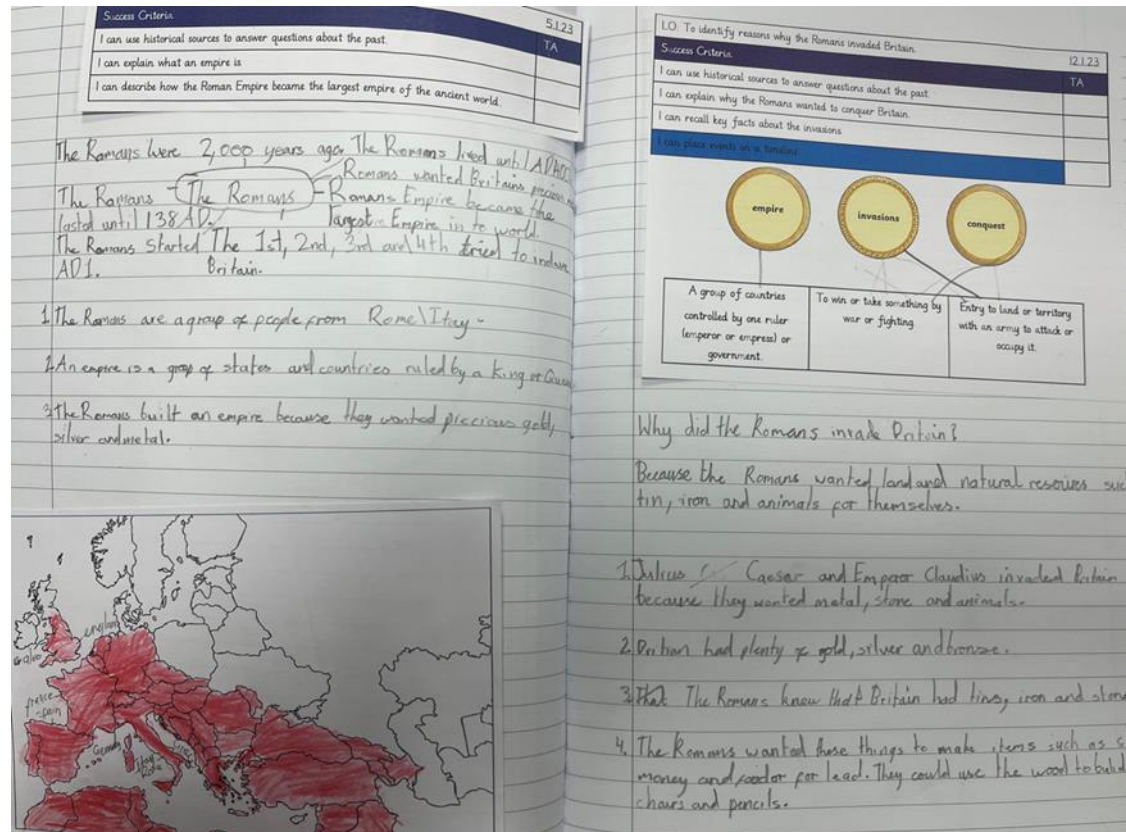 Success Criteria
5.1.23
I can use historical sources to answer questions about the past.
TA
I can explain what an empire is
I can describe how the Roman Empire became the largest empire of the ancient world.
The Romans were 2,000 years ago. The Romans lived until
Romans wanted Britains
The Romans - The Romans - Romans Empire became the
lastod until 138 AD.
largest Empire in to world.
The Romans started The 1st, 2nd, 3rd and 4th tried to
AD1. Britain.
1. The Romans are a group of people from Rome\Itay -
2. An empire is a group of states and countries ruled by a King or
3. The Romans built an empire because they wanted preccious gold,
silver and metal.
england
france
spain
Rome
LO. To identify reasons why the Romans invaded Britain.
12.1.23
Success Criteria
TA
I can use historical sources to answer questions about the past.
I can explain why the Romans wanted to conquer Britain.
I can recall key facts about the invasions
I can place events on a timeline
empire
invasions
conquest
A group of countries
controlled by one ruler
(emperor or empress) or
government.
To win or take something by
war or fighting
Entry to land or territory
with an army to attack or
occupy it.
Why did the Romans invade Britain?
Because the Romans wanted land and natural
tin, iron and animals for themselves.
1. Julius Caesar and Emperor Claudius invaded Britain
because they wanted metal, stone and animals.
2. had plenty of gold, silver and bronze.
3. The Romans knew that Britain had iron and
4. The Romans wanted these things to make items such as
money and for lead. They could use the wood to
chairs and pencils.